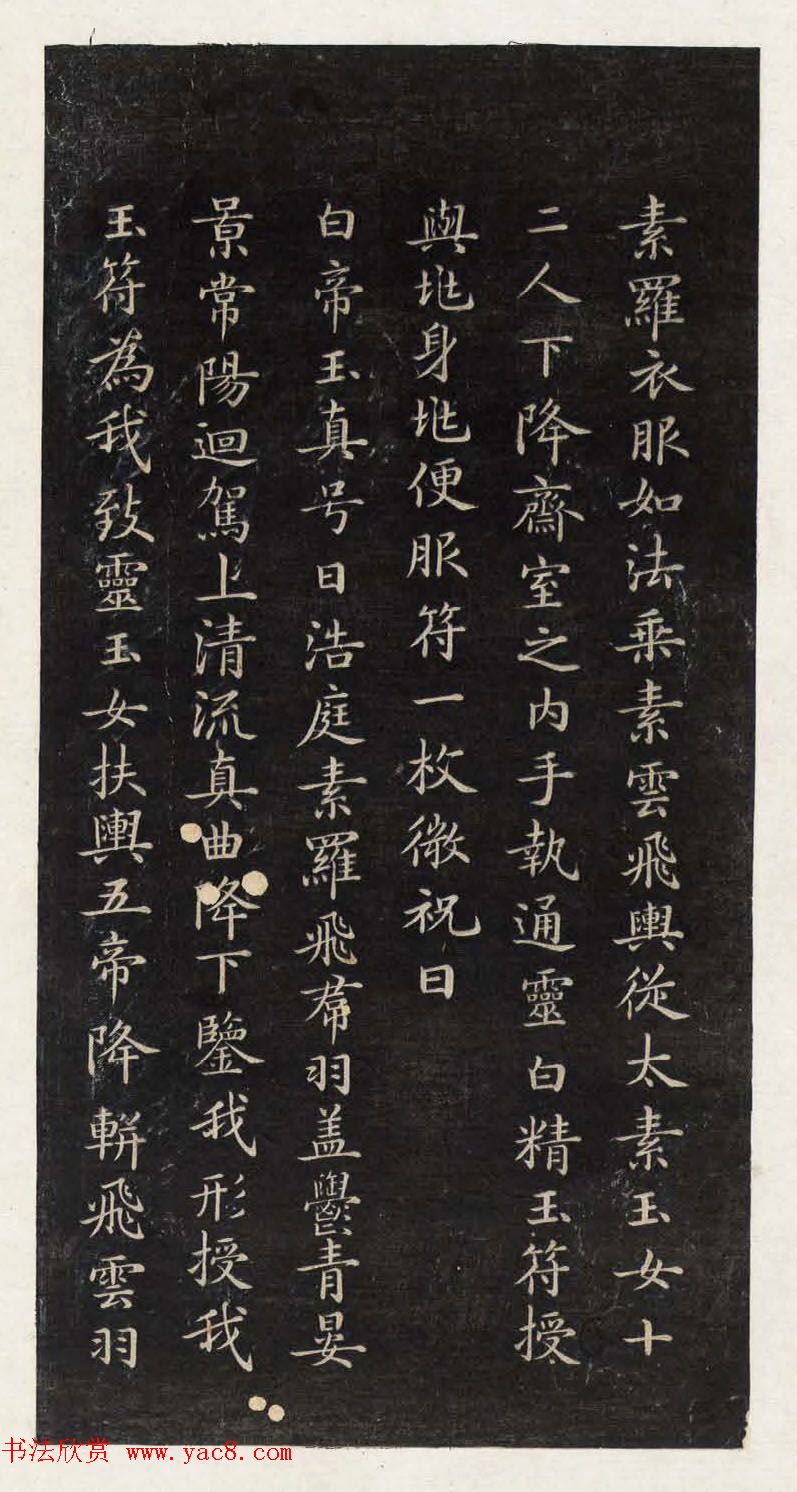 素羅衣服如法乗素雲飛輿從太素玉女十
二人下降齋室之内手執通靈白精玉符授
與兆身兆便服符一枚微祝曰
白帝玉真号曰浩庭素羅飛帬羽盖鬱青晏
景常陽迴駕上清流真曲降下鑒我形授我
玉符為我致靈玉女扶輿五帝降軿飛雲羽
书法欣赏 www.yac8.com